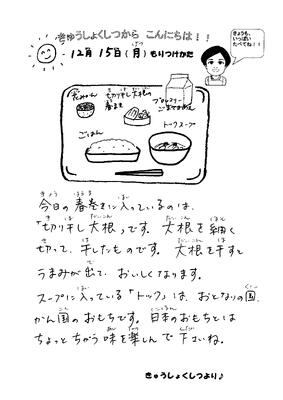 きゅうしょくしつから こんにちは!!
12月 15日(月) もりつけかた
きょうも、
いっぱい
たべてね!!
花みかん
切り干し大根の
春まき
トックスープ
ごはん
今日の春巻きに入っているのは、
「切り干し大根」です。大根を細く
切って、干したものです。大根を干すと
うまみが出て、おいしくなります。
スープに入っている「トック」は、おとなりの国、
かん国のおもちです。日本のおもちとは
ちょっとちがう味を楽しんで下さいね。
きゅうしょくしつより♪